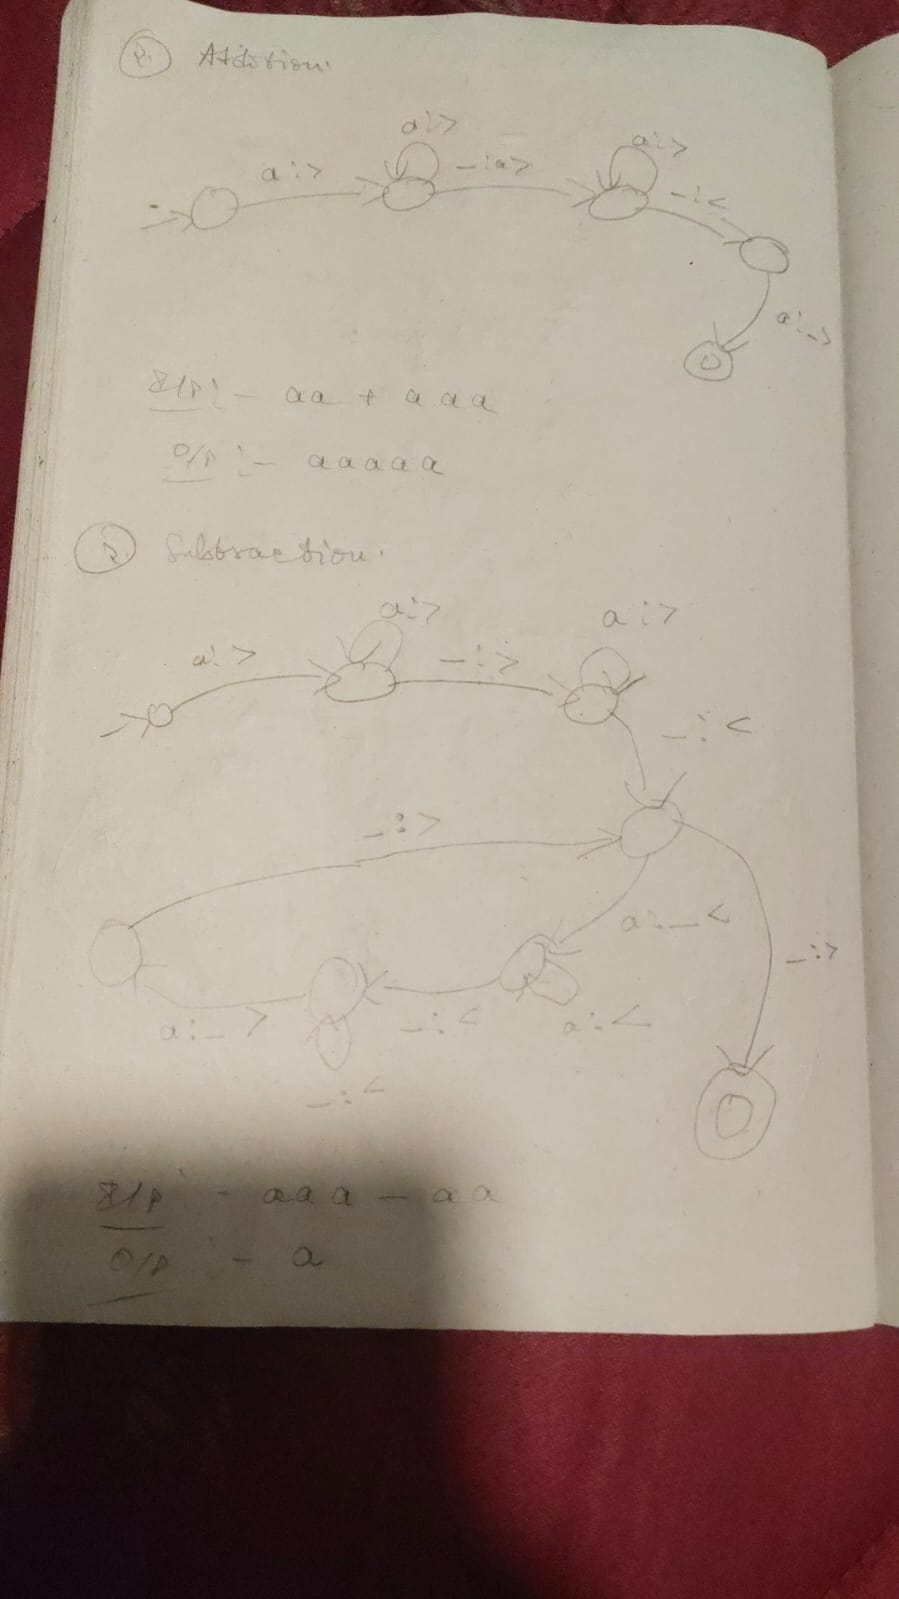 2. Addition:
a:> a:> -:a> a:> -:<
a:_>
I/P :- aa + aaa
O/P :- aaaaa
3. Subtraction:
a:> a:> -:> a:>
_:<
_:>
a:_<
_:>
a:_> _:< a:<
_:<
I/P - aaa - aa
O/P :- a